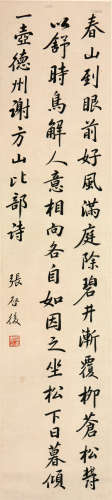 春山到眼前好風滿庭除碧井漸覆柳蒼松聳
以舒時鳥解人意相向各自如因之坐松下日暮傾
一壺德州謝方山比部詩
張啓後